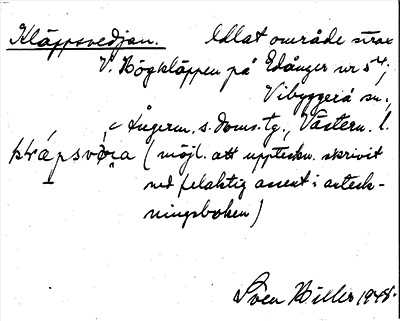 Kläppsvedjan. Odlat område strax
V. Högkläppen på Edånger nr 5⁴,
Vibyggerå sn.,
Ångerm. s. doms.tg., Västern. l.
(möjl. att uppteckn. skrivit
ned felaktig accent i anteck-
ningsboken)
Sven Hiller 1948.